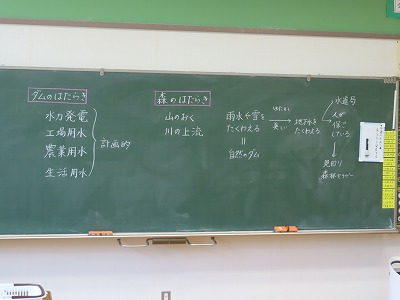 ダムのはたらき
水力発電
工場用水
農業用水
生活用水
計画的
森のはたらき
山のおく
川の上流
雨水や雪を
たくわえる
||
自然のダム
長い
地下水を
たくわえる
水道局
人が
保ご
している
↓
見回り